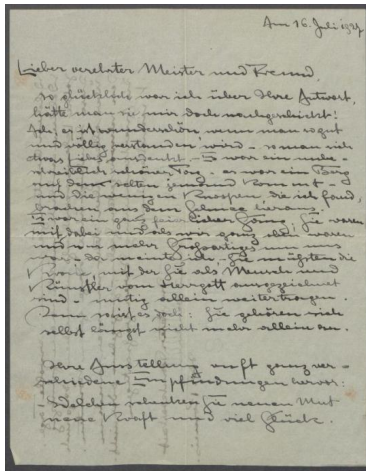 Am 16. Juli 1927
Lieber verehrter Meister und Freund,
so glücklich war ich über Ihre Antwort,
hätte man sie mir doch nachgeschickt!
Ach, es ist wunderschön, wenn man so gut
und völlig verstanden wird – wo man sich
etwas ausdenkt – Es war ein
schöner Tag – es war ein Berg
auf den selten jemand kommt –
und die einzigen Knospe – die ich fand,
brachen aus dem Schnee heraus.
Es war ein ganz lieber Gang. Sie waren
mit dabei und als wir ganz oben waren
und um mich Großartiges um uns
war – da meinte ich, Sie müssten die
mit der Sie als Mensch und
Künstler vom Herrgott ausgezeichnet
sind – mutig allein weitertragen.
Dann weiß es: Sie gehören sich
selbst längst nicht mehr allein an.
Ihre Ausstellung ruft ganz ver-
schiedene Empfindungen hervor:
Sie neuen Mut
neue Kraft und viel Glück.